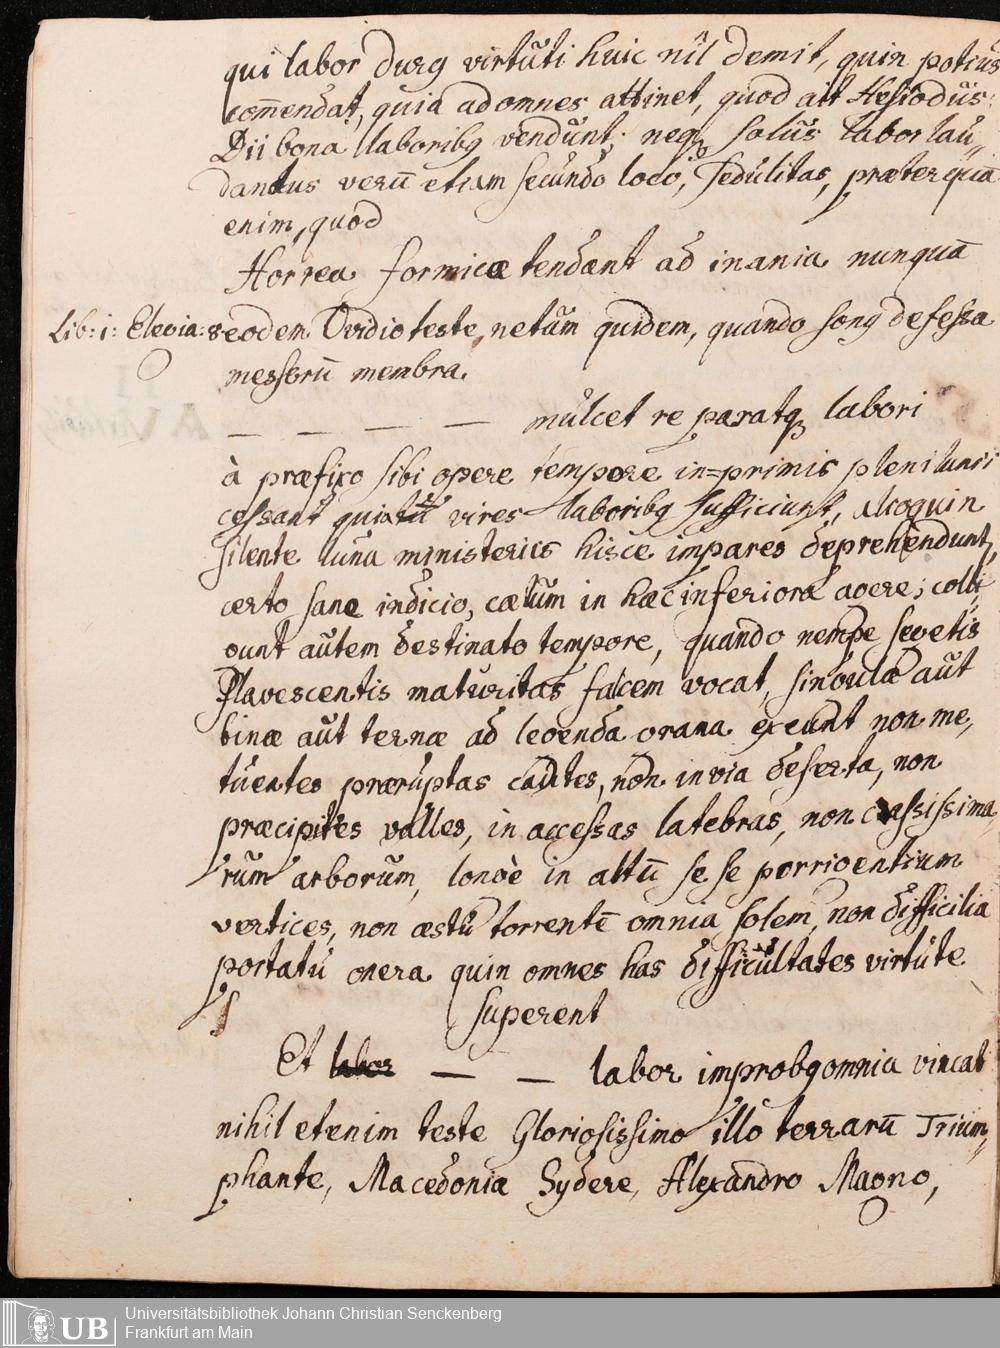 qui labor durꝰ virtuti huic nil demit, quin potius
com̄endat, quia ad omnes attinet, quod ait Hesiodus:
Dii bona laboribꝰ vendunt; neqꝫ solus labor lau„
dandus verū etiam secundo loco, sedulitas, præterquā
enim, quod
Horrea formicæ tendant ad inania nunquā
Lib: i: Elegia: 8 eodem Ovidio teste, netum quidem, quando somꝰ defessa
messorū membra.
— — — — mulcet reparatqꝫ labori
à præfixo sibi opere tempore in=primis plenilunii
cessant quia tū vires laboribꝰ sufficiunt, alioquin
silente luna ministeriis hisce impares deprehendunt,
certo sane indicio, cælum in hæc inferiora agere; colli„
gunt autem destinato tempore, quando nempe segetis
flavescentis maturitas falcem vocat, singulæ aut
binæ aut ternæ ad legenda grana exeunt non me„
tuentes præruptas cautes, non invia deserta, non
præcipites valles, inaccessas latebras, non crassissima„
rum arborum, longè in altū sese porrigentium
vertices, non æstu torrentē omnia solem, non difficilia
portatu onera quin omnes has difficultates virtute
superent
Et labor — — labor improbꝰ omnia vincat
nihil etenim teste Gloriosissimo illo terrarū Trium„
phante, Macedoniæ Sydere, Alexandro Magno,
UB Universitätsbibliothek Johann Christian Senckenberg
Frankfurt am Main